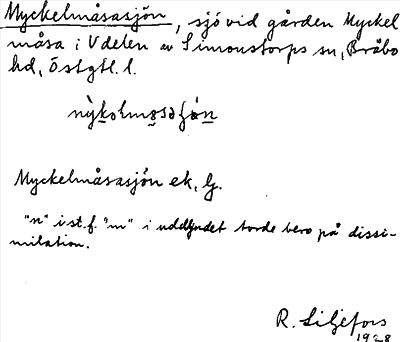 Myckelmåsasjön, sjö vid gården Myckel
måsa i V delen av Simonstorps sn, Bråbo
hd, Östgtl. l.
Myckelmåsasjön ek, G.
"n" i st. f. "m" i uddljudet torde bero på dissi-
milation.
R. Liljefors
1928